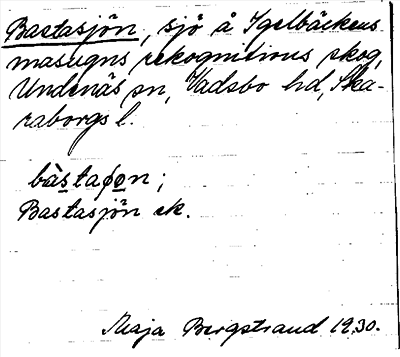 Bastasjön, sjö å Igelbäckens
masugns rekognitions skog,
Undenäs sn, Vadsbo hd, Ska-
raborgs l.
bàstaʃon;
Bastasjön ek.
Maja Bergstrand 1930.